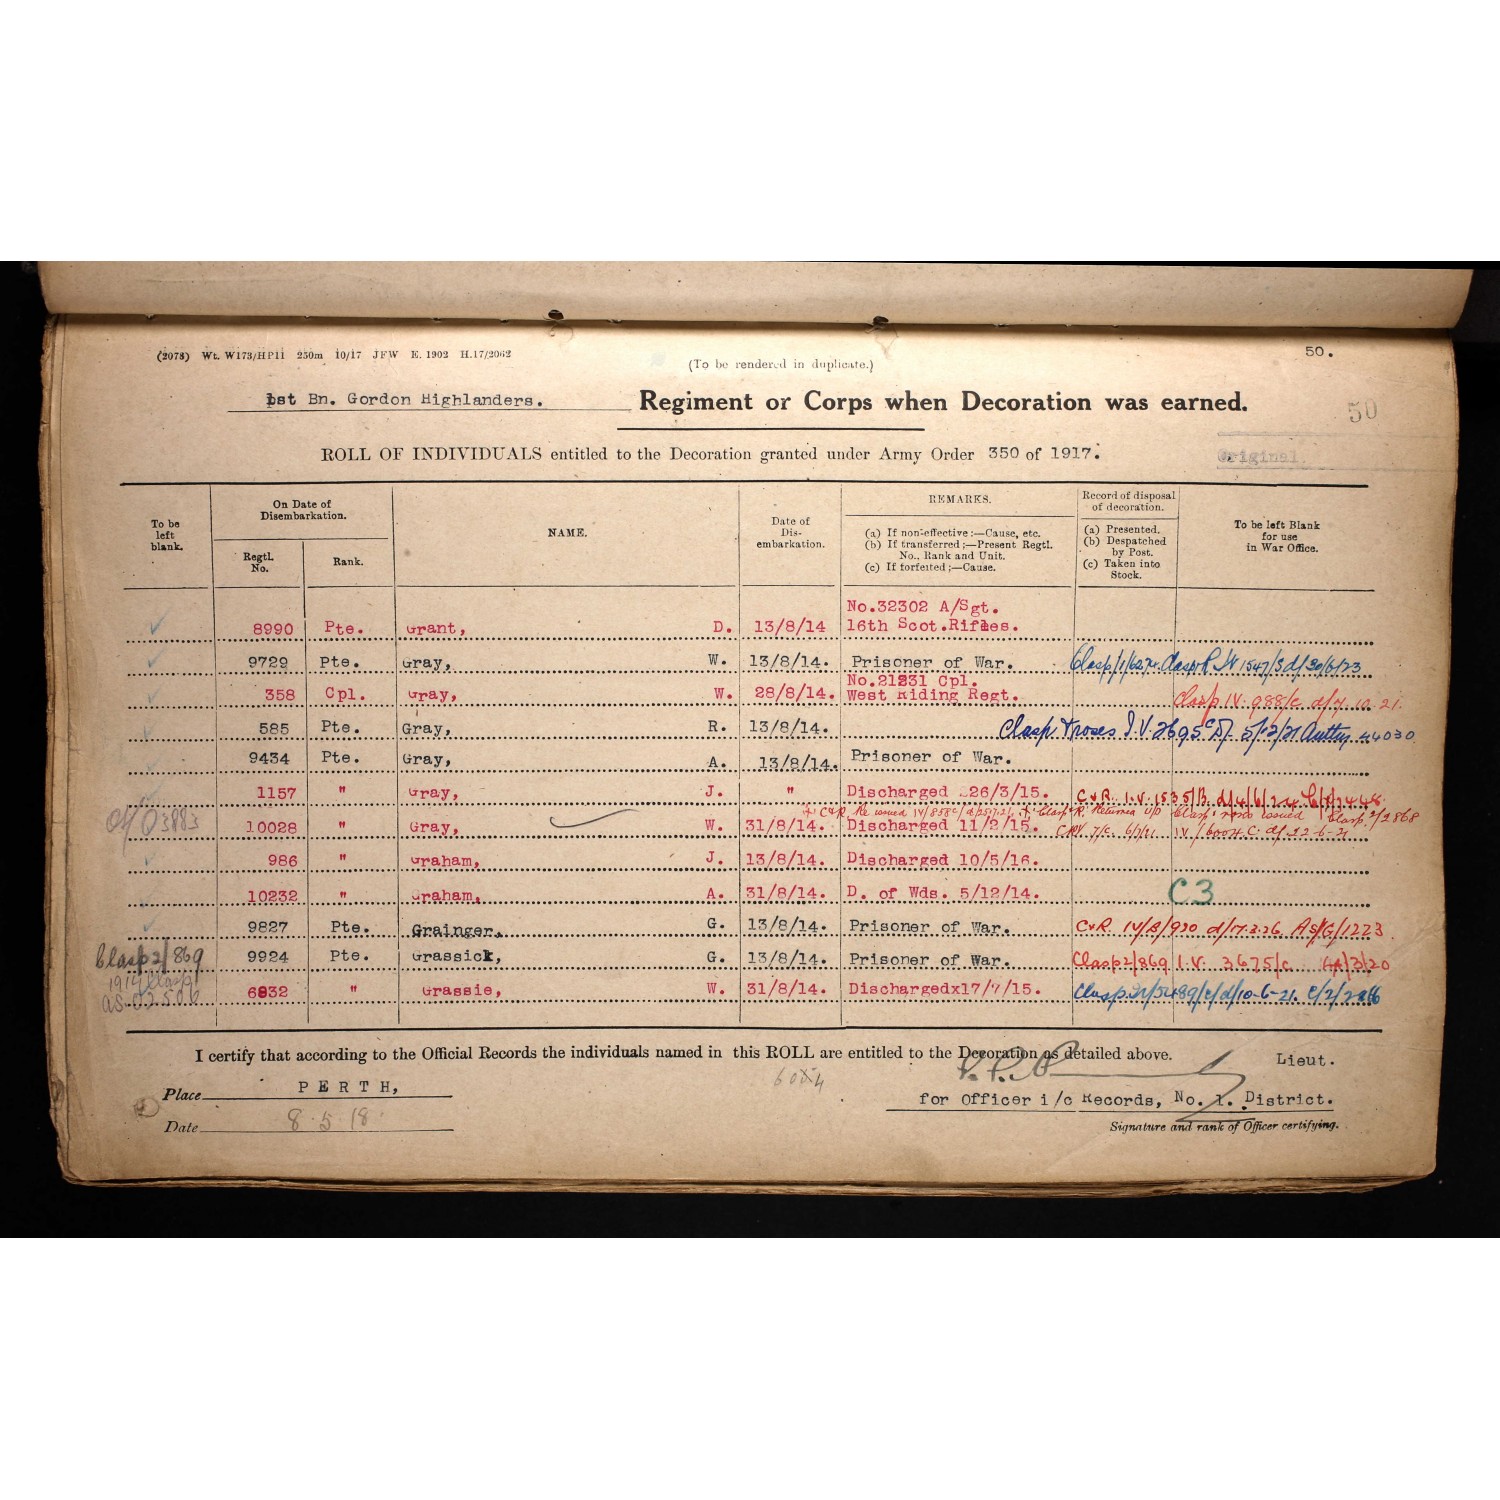 (2073) Wt. W173/HP11 250m 10/17 JFW E. 1902 H.17/2062
50.
(To be rendered in duplicate.)
1st Bn. Gordon Highlanders. Regiment or Corps when Decoration was earned.
50
ROLL OF INDIVIDUALS entitled to the Decoration granted under Army Order 350 of 1917.
Original.
To be left blank.
On Date of Disembarkation.
Regtl. No.
Rank.
NAME.
Date of Disembarkation.
REMARKS.
(a) If non-effective:—Cause, etc.
(b) If transferred;—Present Regtl. No., Rank and Unit.
(c) If forfeited;—Cause.
Record of disposal of decoration.
(a) Presented.
(b) Despatched by Post.
(c) Taken into Stock.
To be left Blank for use in War Office.
No.32302 A/Sgt.
8990 Pte. Grant, D. 13/8/14 16th Scot.Rifles.
9729 Pte. Gray, W. 13/8/14. Prisoner of War. Clasp/1/627
No.21231 Cpl.
358 Cpl. Gray, W. 28/8/14. West Riding Regt. Clasp IV. 988/c d/7.10.21.
585 Pte. Gray, R. 13/8/14. Clasp & roses I.V. 2695 44030
9434 Pte. Gray, A. 13/8/14. Prisoner of War.
1157 " Gray, J. " Discharged 26/3/15. C&R. I.V. 1535/B. d/4/6/24
3883
10028 " Gray, W. 31/8/14. Discharged 11/2/15.
986 " Graham, J. 13/8/14. Discharged 10/5/16.
10232 " Graham, A. 31/8/14. D. of Wds. 5/12/14. C3
9827 Pte. Grainger, G. 13/8/14. Prisoner of War. C&R. IV/B/930 d/17.3.26 AS/G/1223
Clasp 2/869 9924 Pte. Grassick, G. 13/8/14. Prisoner of War. Clasp 2/869 I.V. 3675/c
1914 Clasp
6932 " Grassie, W. 31/8/14. Dischargedx17/7/15. Clasp d/10-6-21.
I certify that according to the Official Records the individuals named in this ROLL are entitled to the Decoration as detailed above.
Lieut.
Place PERTH,
for Officer i/c Records, No. 1. District.
Date 8.5.18.
Signature and rank of Officer certifying.